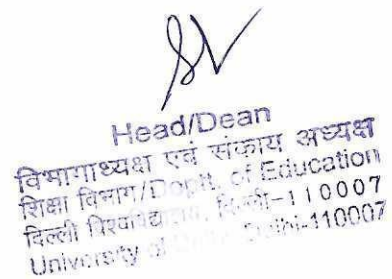 Head/Dean
विभागाध्यक्ष एवं संकाय अध्यक्ष
शिक्षा विभाग/Deptt. of Education
दिल्ली विश्वविद्यालय, दिल्ली-110007
University of Delhi-110007